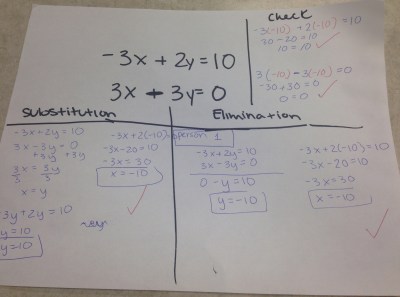 -3x + 2y = 10
3x - 3y = 0
check
-3(-10) + 2(-10) = 10
30 - 20 = 10
10 = 10
3(-10) - 3(-10) = 0
-30 + 30 = 0
0 = 0
Substitution
-3x + 2y = 10
3x - 3y = 0
+3y +3y
3x = 3y
3 3
x = y
-3y + 2y = 10
y = 10
y = -10
-3x + 2(-10) =
-3x - 20 = 10
-3x = 30
x = -10
Elimination
person 1
-3x + 2y = 10
3x - 3y = 0
0 - y = 10
y = -10
-3x + 2(-10) = 10
-3x - 20 = 10
-3x = 30
x = -10